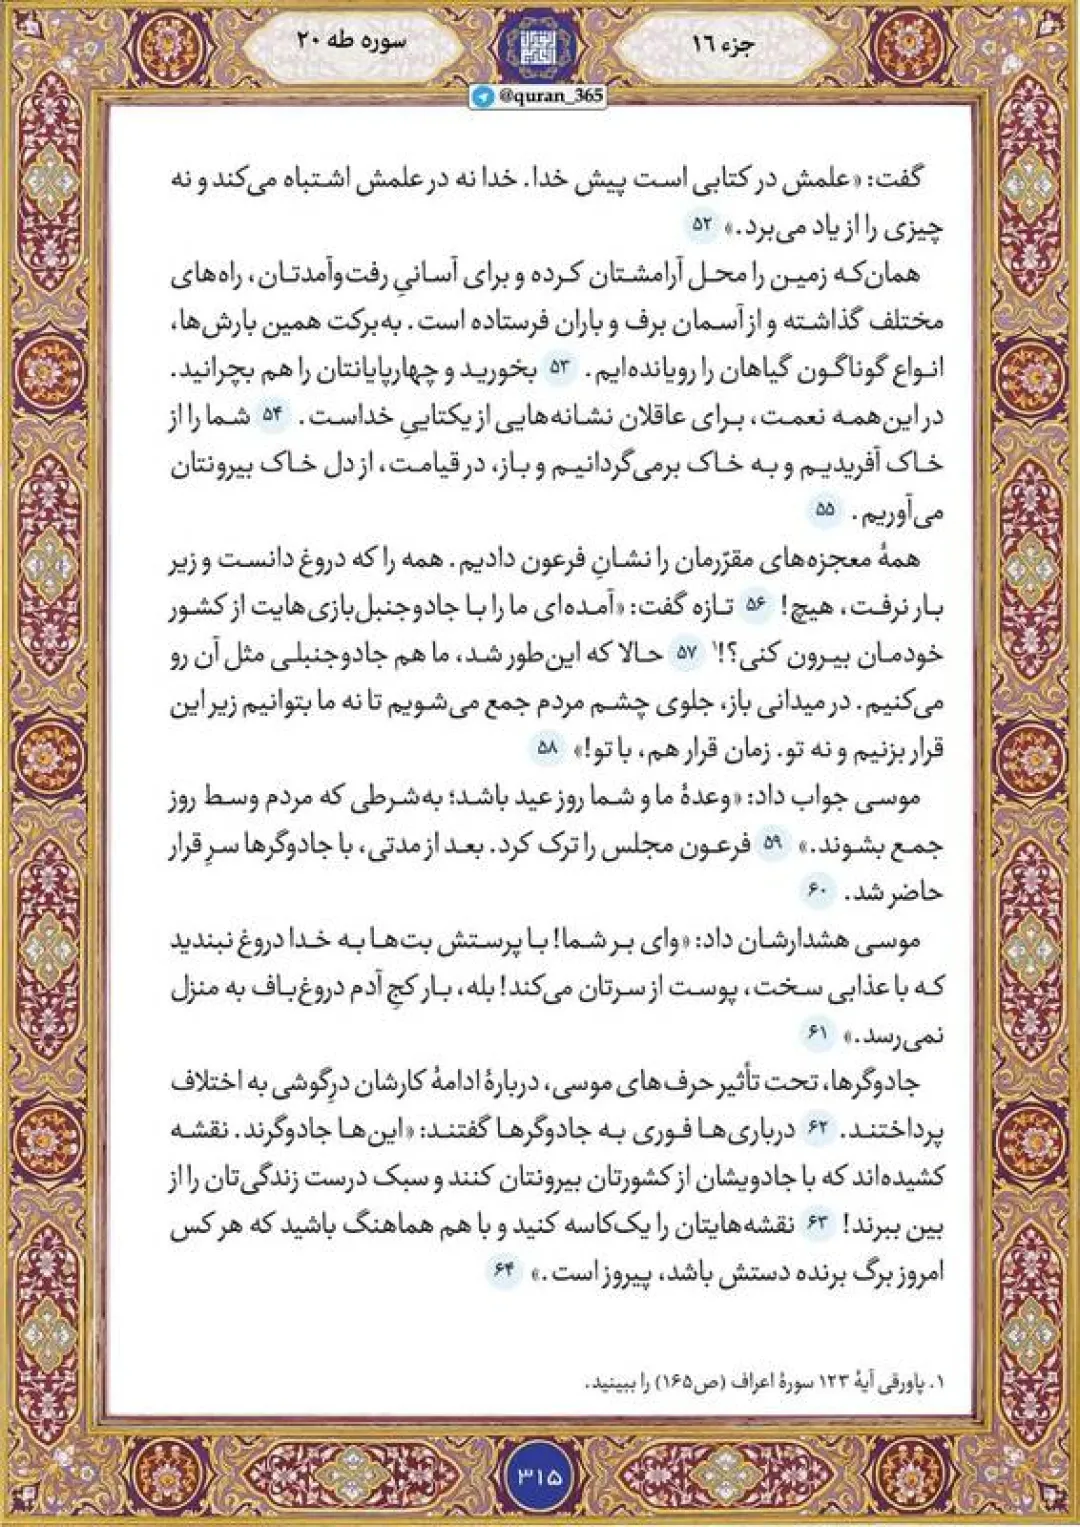 جزء ۱۶
سوره طه ۲۰
@quran_365
گفت: «علمش در کتابی است پیش خدا. خدا نه در علمش اشتباه می‌کند و نه
چیزی را از یاد می‌برد.» ۵۲
همان‌که زمین را محل آرامشتان کرده و برای آسانیِ رفت‌وآمدتان، راه‌های
مختلف گذاشته و از آسمان برف و باران فرستاده است. به‌برکت همین بارش‌ها،
انواع گوناگون گیاهان را رویانده‌ایم. ۵۳ بخورید و چهارپایانتان را هم بچرانید.
در این‌همه نعمت، برای عاقلان نشانه‌هایی از یکتاییِ خداست. ۵۴ شما را از
خاک آفریدیم و به خاک برمی‌گردانیم و باز، در قیامت، از دل خاک بیرونتان
می‌آوریم. ۵۵
همهٔ معجزه‌های مقرّرمان را نشانِ فرعون دادیم. همه را که دروغ دانست و زیر
بار نرفت، هیچ! ۵۶ تازه گفت: «آمده‌ای ما را با جادوجنبل‌بازی‌هایت از کشور
خودمان بیرون کنی؟!۱ ۵۷ حالا که این‌طور شد، ما هم جادوجنبلی مثل آن رو
می‌کنیم. در میدانی باز، جلوی چشم مردم جمع می‌شویم تا نه ما بتوانیم زیر این
قرار بزنیم و نه تو. زمان قرار هم، با تو!» ۵۸
موسی جواب داد: «وعدهٔ ما و شما روز عید باشد؛ به‌شرطی که مردم وسط روز
جمع بشوند.» ۵۹ فرعون مجلس را ترک کرد. بعد از مدتی، با جادوگرها سرِ قرار
حاضر شد. ۶۰
موسی هشدارشان داد: «وای بر شما! با پرستش بت‌ها به خدا دروغ نبندید
که با عذابی سخت، پوست از سرتان می‌کند! بله، بار کجِ آدم دروغ‌باف به منزل
نمی‌رسد.» ۶۱
جادوگرها، تحت تأثیر حرف‌های موسی، دربارهٔ ادامهٔ کارشان درِگوشی به اختلاف
پرداختند. ۶۲ درباری‌ها فوری به جادوگرها گفتند: «این‌ها جادوگرند. نقشه
کشیده‌اند که با جادویشان از کشورتان بیرونتان کنند و سبک درست زندگی‌تان را از
بین ببرند! ۶۳ نقشه‌هایتان را یک‌کاسه کنید و با هم هماهنگ باشید که هر کس
امروز برگ برنده دستش باشد، پیروز است.» ۶۴
۱. پاورقی آیهٔ ۱۲۳ سورهٔ اعراف (ص۱۶۵) را ببینید.
۳۱۵